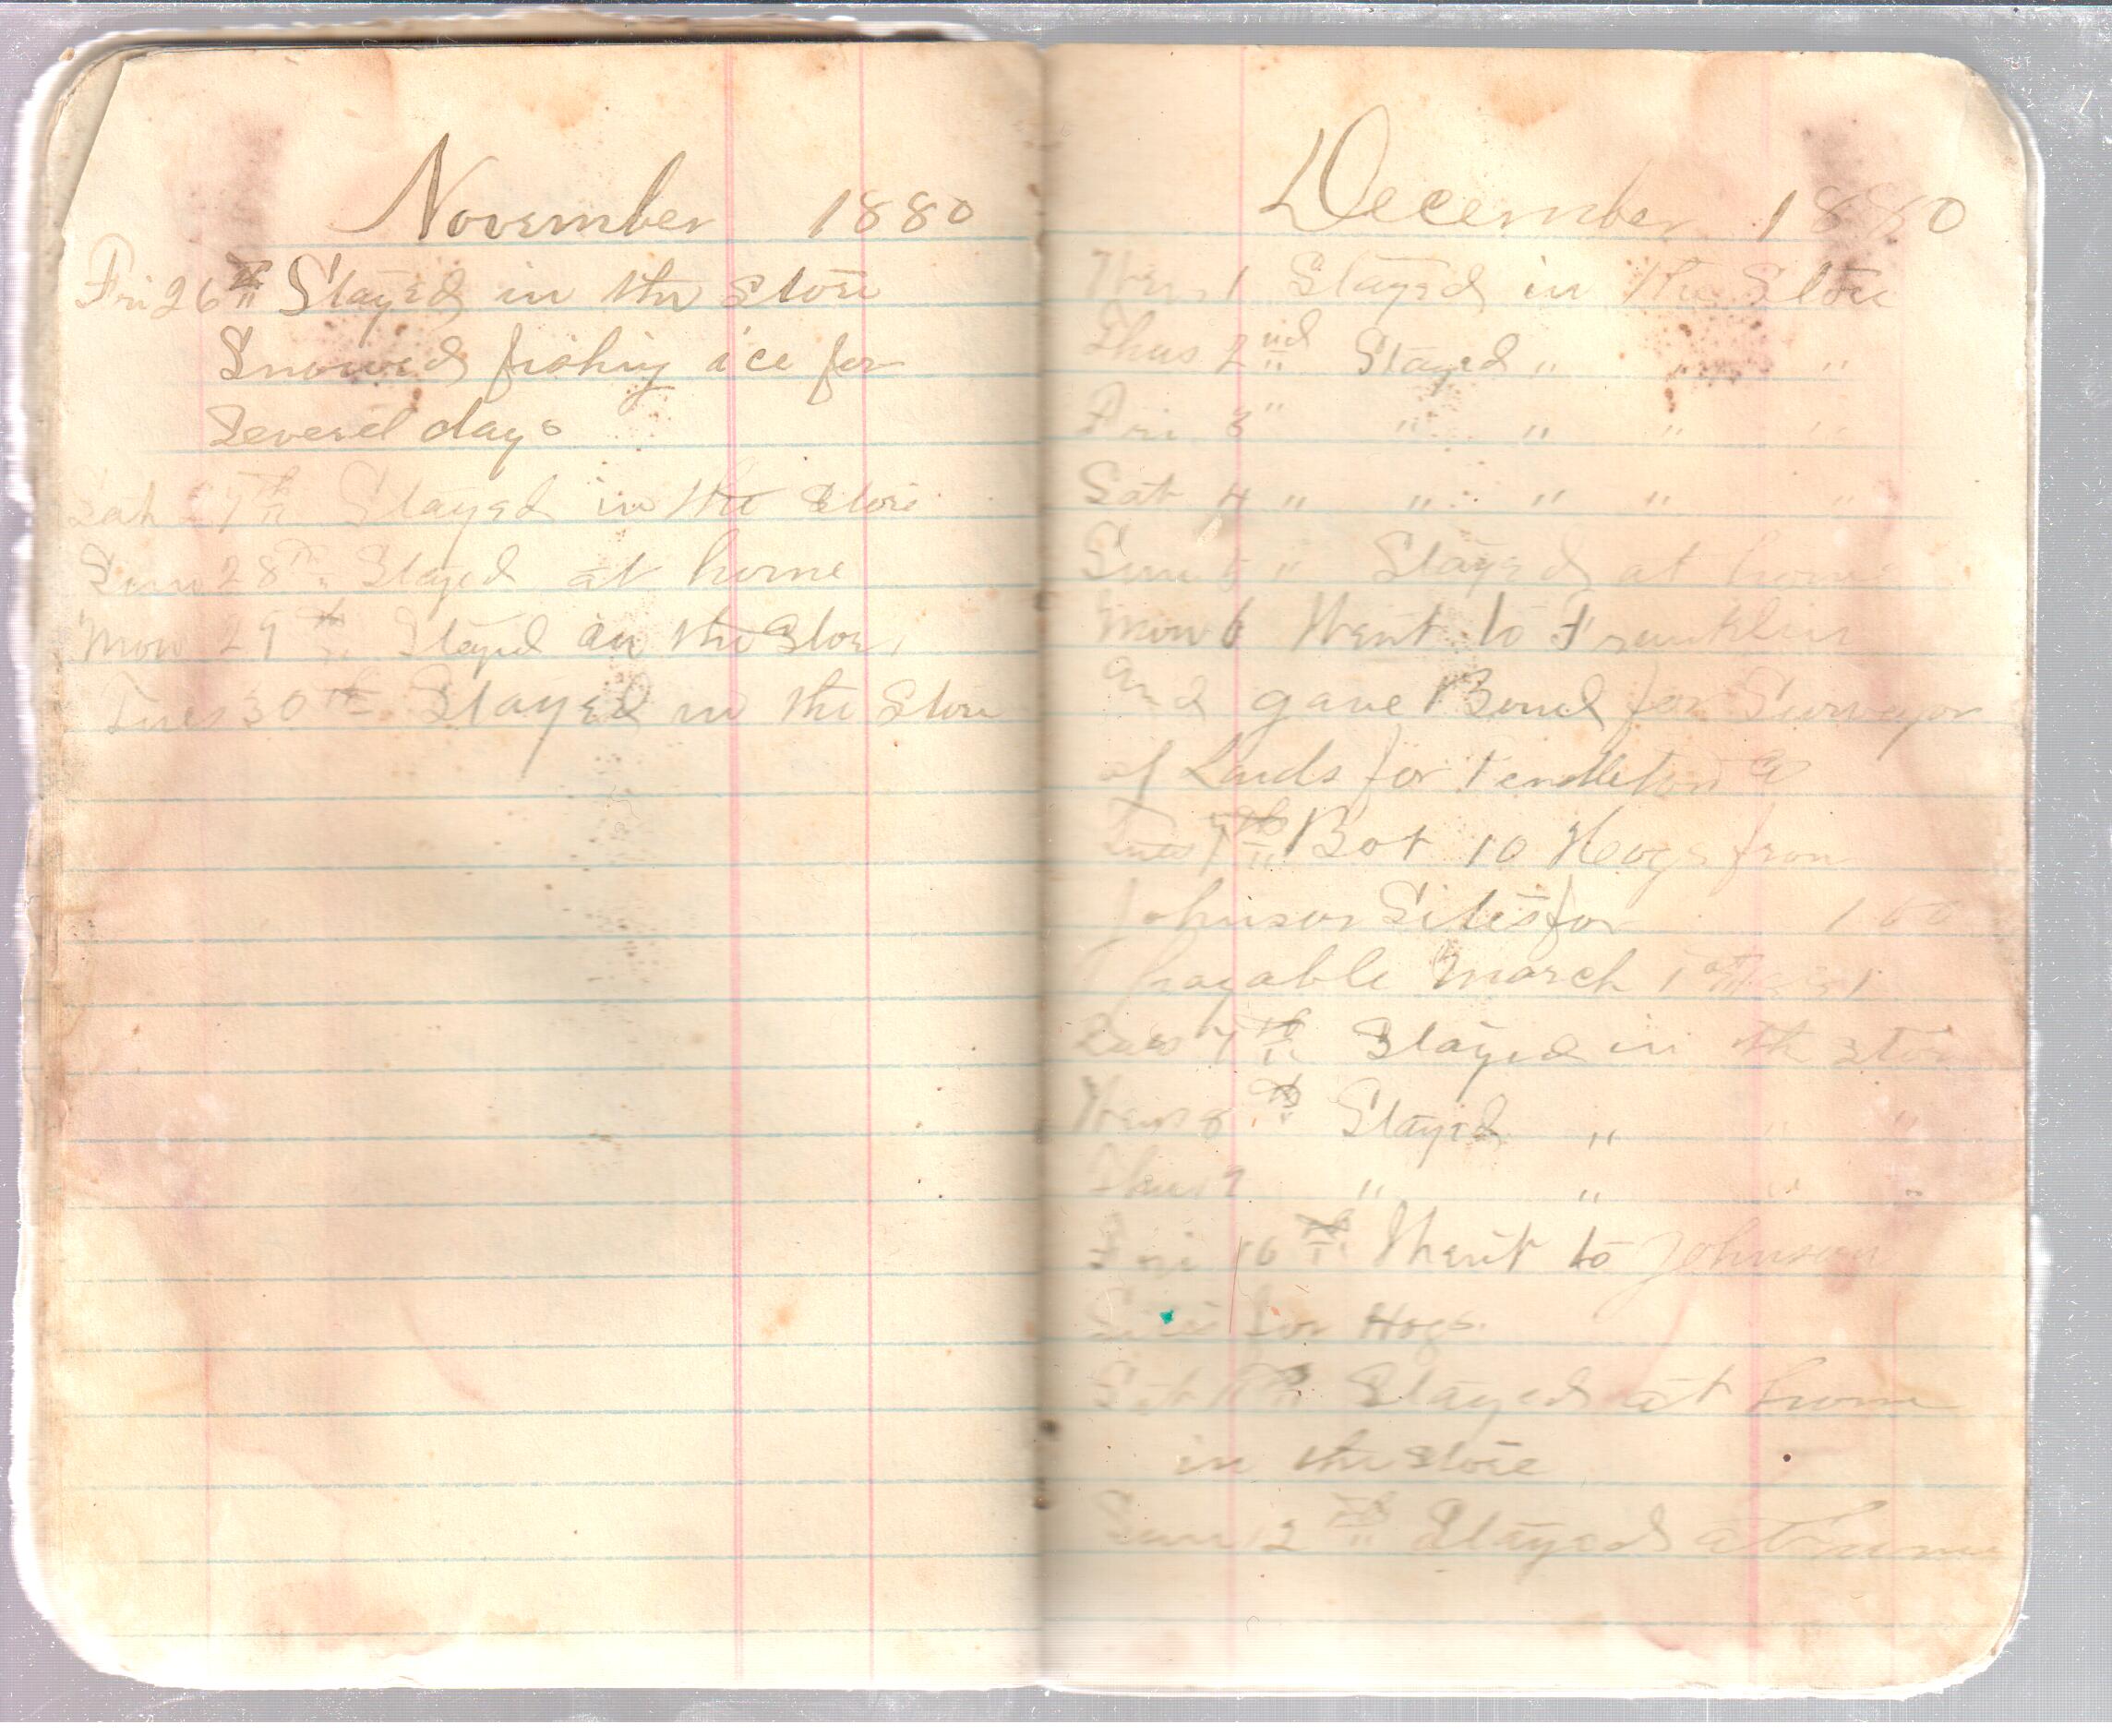 November 1880
Fri 26th Stayed in the Store
Snowed fishing ice for
Severel days
Sat 27th Stayed in the Store
Sun 28th Stayed at home
Mon 29th Stayed in the Store
Tues 30th Stayed in the Store
December 1880
Wens 1 Stayed in the Store
Thus 2nd Stayed " " "
Fri 3 " " " " "
Sat 4 " " " " "
Sun 5 " Stayed at home
Mon 6 Went to Franklin
and gave Bond for Surveyor
of Lands for Pendleton Co
Tues 7th Bot 10 Hoogs from
Johnson Sites for
payable March 1st
Tues 7th Stayed in th store
Wens 8th Stayed " " "
Thus 9 " " " "
Fri 10th Went to Johnson
for Hogs.
Sat 11th Stayed at home
in the store
Sun 12th Stayed at home